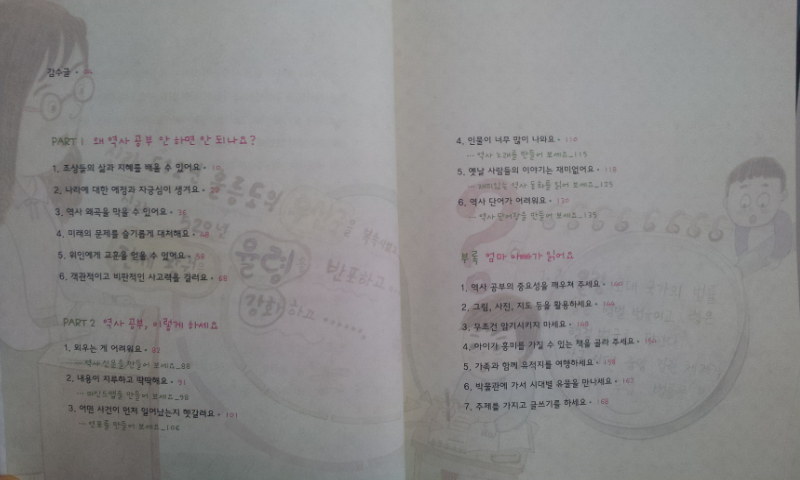 감수글 •
PART 1 왜 역사 공부 안 하면 안 되나요?
1. 조상들의 삶과 지혜를 배울 수 있어요 •
2. 나라에 대한 애정과 자긍심이 생겨요 •
3. 역사 왜곡을 막을 수 있어요 •
4. 미래의 문제를 슬기롭게 대처해요 •
5. 위인에게 교훈을 얻을 수 있어요 •
6. 객관적이고 비판적인 사고력을 길러요 • 68
PART 2 역사 공부, 이렇게 하세요
1. 외우는 게 어려워요 •
역사 신문을 만들어 보세요_86
2. 내용이 지루하고 딱딱해요 • 91
마인드맵을 만들어 보세요_98
3. 어떤 사건이 먼저 일어났는지 헷갈려요 • 101
연표를 만들어 보세요_106
4. 인물이 너무 많이 나와요 • 110
역사 노래를 만들어 보세요_115
5. 옛날 사람들의 이야기는 재미없어요 • 118
재미있는 역사 동화를 읽어 보세요_125
6. 역사 단어가 어려워요 • 130
역사 단어장을 만들어 보세요_135
부록 엄마 아빠가 읽어요
1. 역사 공부의 중요성을 깨우쳐 주세요 •
2. 그림, 사진, 지도 등을 활용하세요 •
3. 무조건 암기시키지 마세요 • 148
4. 아이가 흥미를 가질 수 있는 책을 골라 주세요 •
5. 가족과 함께 유적지를 여행하세요 • 158
6. 박물관에 가서 시대별 유물을 만나세요 • 163
7. 주제를 가지고 글쓰기를 하세요 • 168